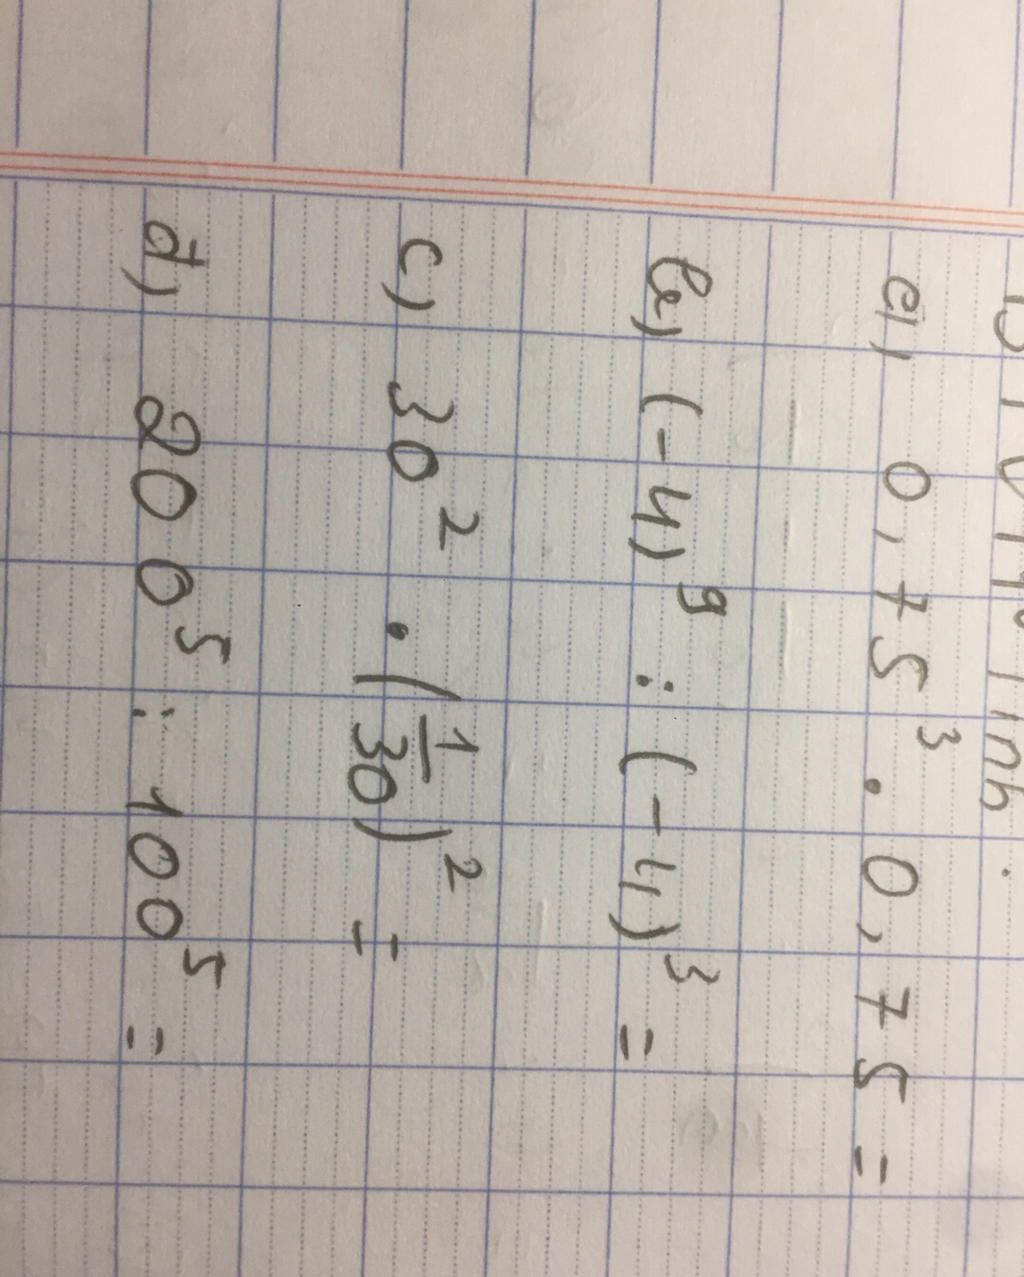 a, 0,75³ . 0,75 =
b, (-4)⁹ : (-4)³ =
c, 30² . (1/30)² =
d, 200⁵ : 100⁵ =